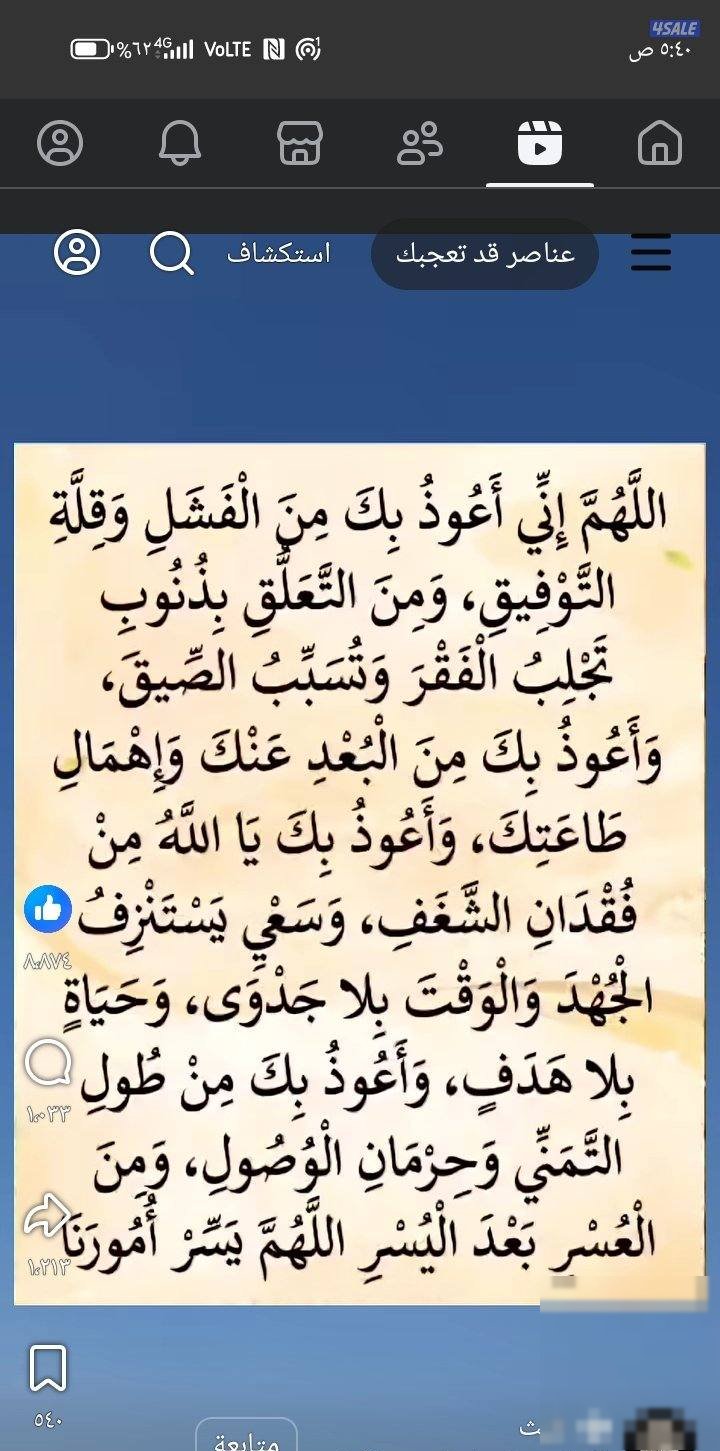 4SALE
٥:٤٠ ص
%٦٢ 4G VoLTE
عناصر قد تعجبك استكشاف
اللَّهُمَّ إِنِّي أَعُوذُ بِكَ مِنَ الْفَشَلِ وَقِلَّةِ
التَّوْفِيقِ، وَمِنَ التَّعَلُّقِ بِذُنُوبِ
تَجْلِبُ الْفَقْرَ وَتُسَبِّبُ الضِّيقَ،
وَأَعُوذُ بِكَ مِنَ الْبُعْدِ عَنْكَ وَإِهْمَالِ
طَاعَتِكَ، وَأَعُوذُ بِكَ يَا اللَّهُ مِنْ
فُقْدَانِ الشَّغَفِ، وَسَعْيٍ يَسْتَنْزِفُ
الْجُهْدَ وَالْوَقْتَ بِلا جَدْوَى، وَحَيَاةٍ
بِلا هَدَفٍ، وَأَعُوذُ بِكَ مِنْ طُولِ
التَّمَنِّي وَحِرْمَانِ الْوُصُولِ، وَمِنَ
الْعُسْرِ بَعْدَ الْيُسْرِ اللَّهُمَّ يَسِّرْ أُمُورَنَا
٨،٨٧٤
١،٠٣٣
١،٢١٣
٥٤٠
متابعة